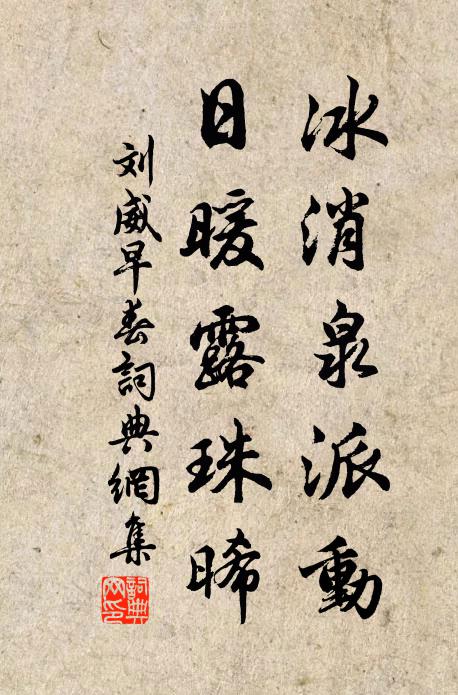 冰消泉派動
日暖露珠晞
刘威早春詞典網集
詞典網印